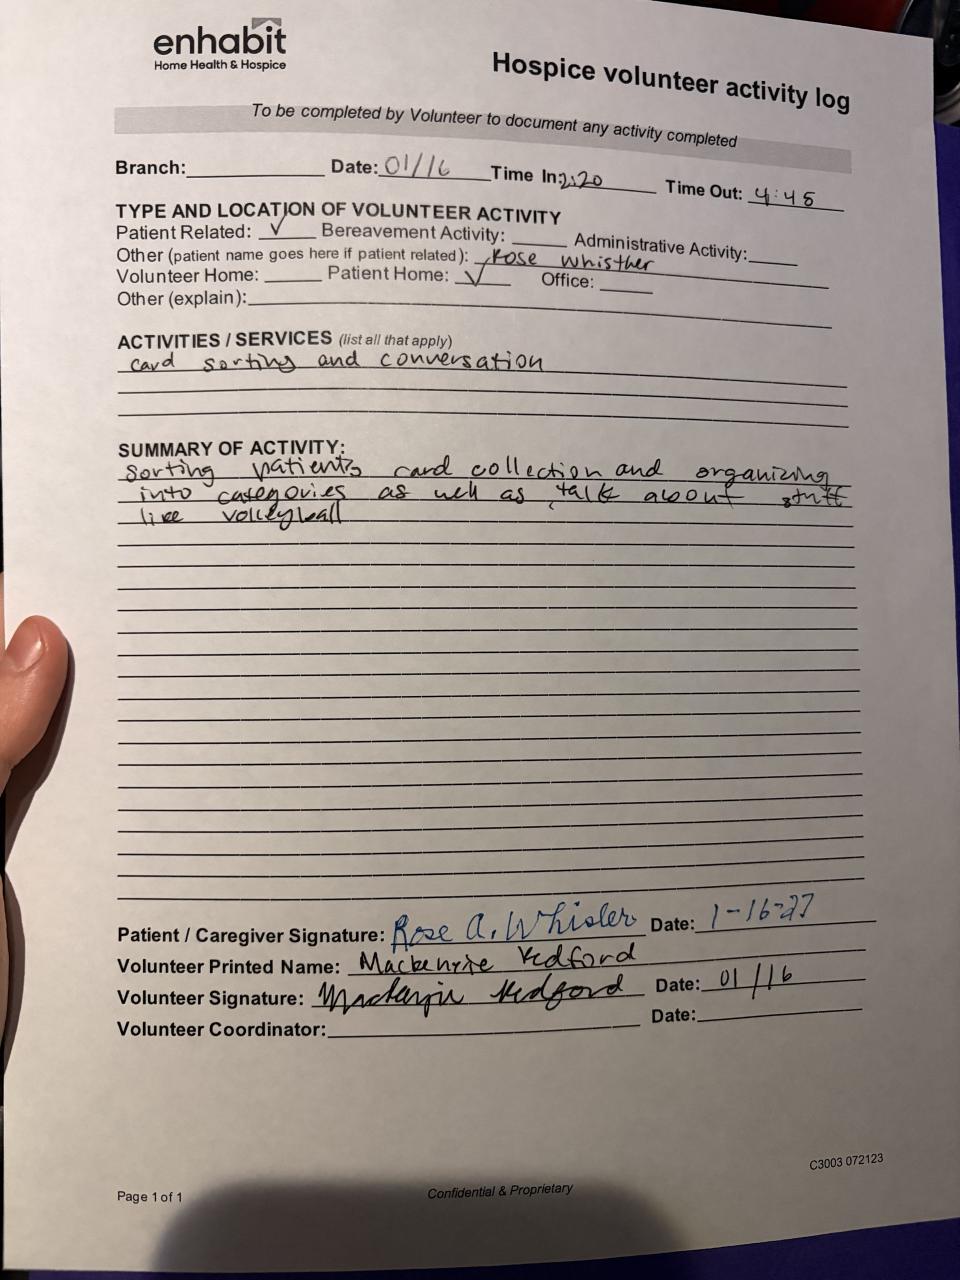 enhabit
Home Health & Hospice
Hospice volunteer activity log
To be completed by Volunteer to document any activity completed
Branch: Date: 01/16 Time In: 2:20 Time Out: 4:45
TYPE AND LOCATION OF VOLUNTEER ACTIVITY
Patient Related: ✓ Bereavement Activity: Administrative Activity:
Other (patient name goes here if patient related): Rose Whisther
Volunteer Home: Patient Home: ✓ Office:
Other (explain):
ACTIVITIES / SERVICES (list all that apply)
card sorting and conversation
SUMMARY OF ACTIVITY:
Sorting patients card collection and organizing
into categories as well as talk about stuff
like volleyball
Patient / Caregiver Signature: Rose A. Whisler Date: 1-16-27
Volunteer Printed Name: Mackenzie Redford
Volunteer Signature: Mackenzie Redford Date: 01/16
Volunteer Coordinator: Date:
C3003 072123
Page 1 of 1
Confidential & Proprietary